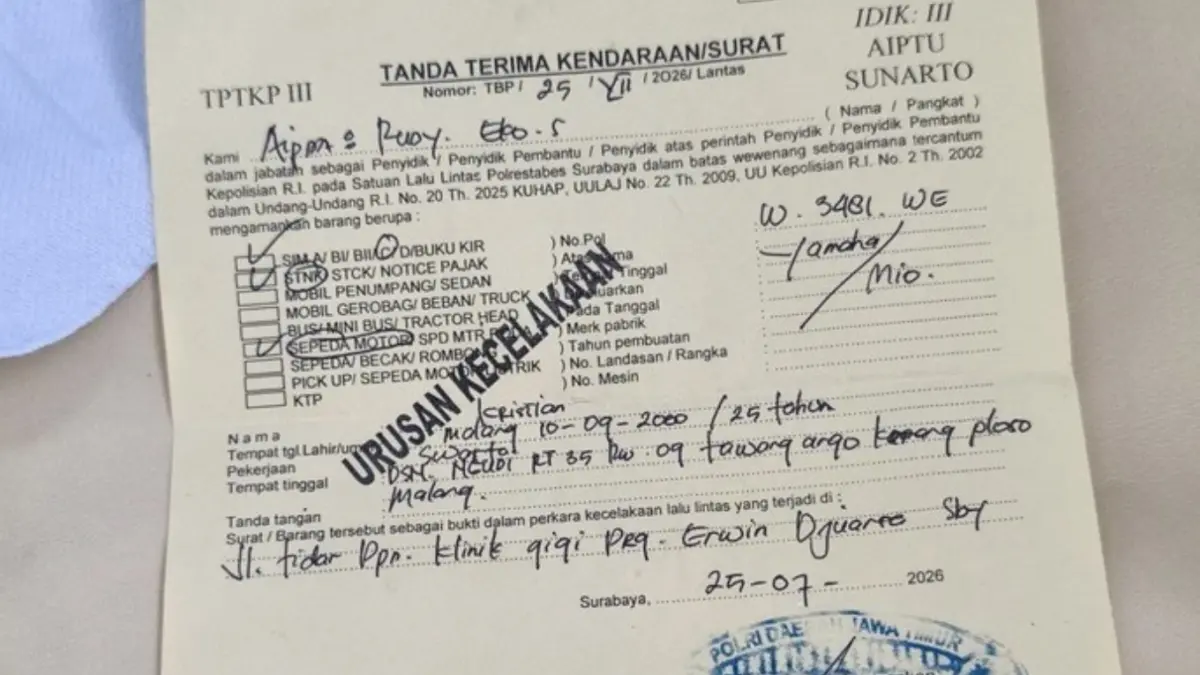 IDIK: III
AIPTU
SUNARTO
TPTKP III
TANDA TERIMA KENDARAAN/SURAT
Nomor: TBP / 25 / VII / 2026/ Lantas
Kami Aipda : Rudy. Eko. S ( Nama / Pangkat )
dalam jabatan sebagai Penyidik / Penyidik Pembantu / Penyidik atas perintah Penyidik / Penyidik Pembantu
Kepolisian R.I. pada Satuan Lalu Lintas Polrestabes Surabaya dalam batas wewenang sebagaimana tercantum
dalam Undang-Undang R.I. No. 20 Th. 2025 KUHAP, UULAJ No. 22 Th. 2009, UU Kepolisian R.I. No. 2 Th. 2002
mengamankan barang berupa :
SIM A/ BI/ BII/ C D/BUKU KIR ) No.Pol W. 3481. WE
STNK STCK/ NOTICE PAJAK ) Yamaha/
MOBIL PENUMPANG/ SEDAN Tinggal Mio.
MOBIL GEROBAG/ BEBAN/ TRUCK
BUS/ MINI BUS/ TRACTOR HEAD Tanggal
SEPEDA MOTOR/ SPD MTR ) Merk pabrik
SEPEDA/ BECAK/ ) Tahun pembuatan
PICK UP/ SEPEDA ) No. Landasan / Rangka
KTP ) No. Mesin
URUSAN KECELAKAAN
Nama Kristian
Tempat tgl.Lahir/ Malang 10-09-2000 / 25 tahun
Pekerjaan Swasta
Tempat tinggal DSN. NGUDI RT 35 RW. 09 tawang argo Karang ploso
Malang.
Tanda tangan
Surat / Barang tersebut sebagai bukti dalam perkara kecelakaan lalu lintas yang terjadi di :
Jl. tidar Dpn. Klinik gigi Drg. Erwin Sby
Surabaya, 25-07- 2026
POLRI DAERAH JAWA TIMUR